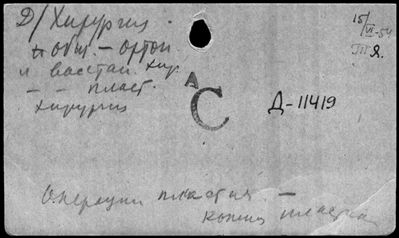 Д/ Хирургия.
и общ. - ортоп
и восстан. хир.
- - пласт.
хирургия
15/VI-54
III Я.
А
С
Д-11419
Операции пластич. -
кожная пластика